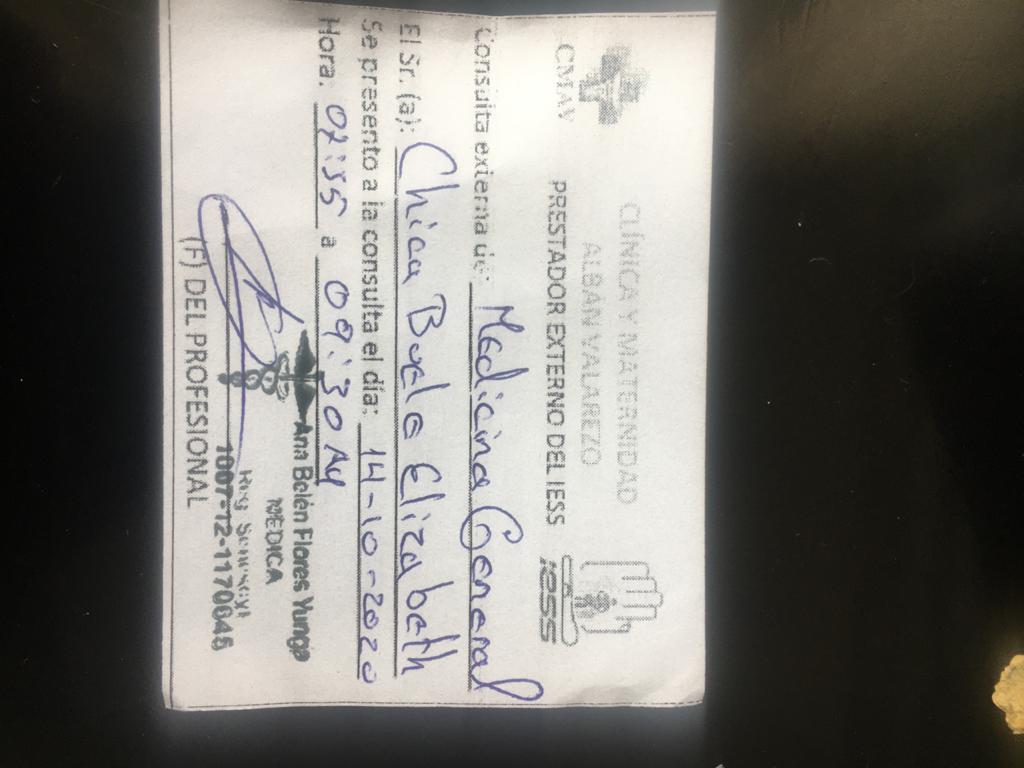 CLÍNICA Y MATERNIDAD
ALBÁN VALAREZO
CMAV
PRESTADOR EXTERNO DEL IESS
IESS
Consulta externa de: Medicina General
El Sr. (a): Chica Elizabeth
Se presento a la consulta el día: 14-10-2020
Hora: 07:55 a 09:30 AM
Ana Belén Flores Yunga
MEDICA
1007-12-1170645
(F) DEL PROFESIONAL